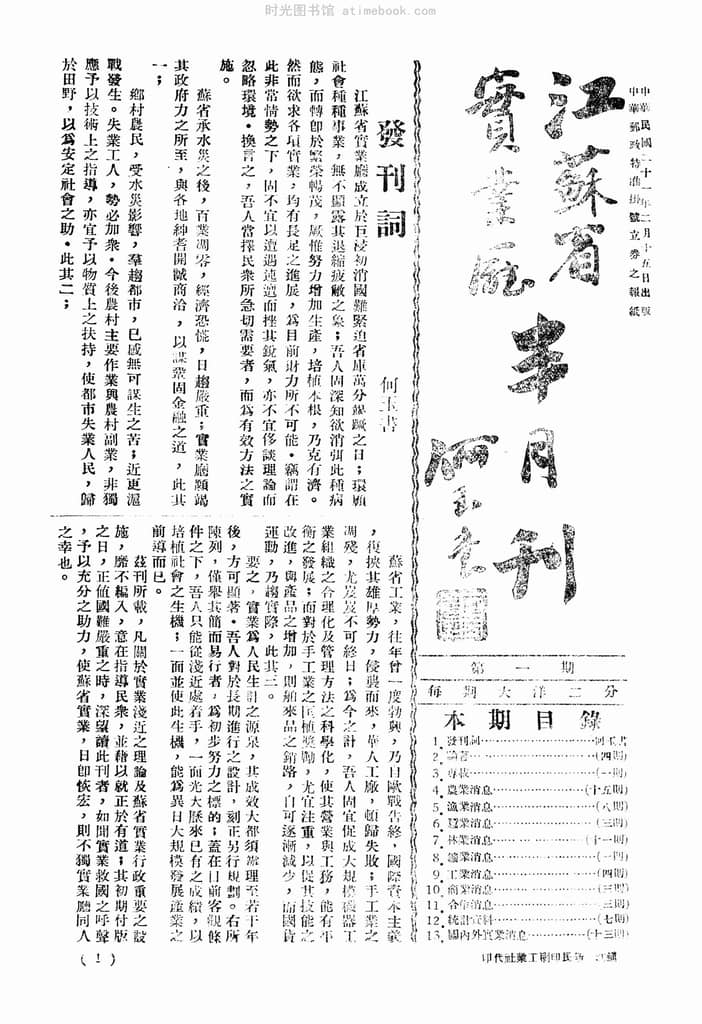 时光图书馆 - atimebook.com
中華民國二十一年二月十五日出版
中華郵政特准掛號立券之報紙
江蘇省
實業廳
半月刊
何玉書
第一期
每期大洋二分
本期目錄
1. 發刊詞……何玉書
2. 論著……(四則)
3. 專載……(一則)
4. 農業消息……(十五則)
5. 漁業消息……(八則)
6. 蠶業消息……(三則)
7. 林業消息……(十一則)
8. 鑛業消息……(一則)
9. 工業消息……(四則)
10. 商業消息……(三則)
11. 合作消息……(三則)
12. 統計資料……(七則)
13. 國內外實業消息……(十三則)
鎮江 新民印刷工業社代印
發刊詞
何玉書
江蘇省實業廳成立於巨浸初消國難緊迫省庫萬分竭蹶之日；環顧
社會種種事業，無不顯露其退縮疲敝之象；吾人固深知欲消弭此種病
態，而轉卽於繁榮暢茂，厥惟努力增加生產，培植本根，乃克有濟。
然而欲求各項實業，均有長足之進展，爲目前財力所不可能。竊謂在
此非常情勢之下，固不宜以遭遇迍邅而挫其銳氣，亦不宜侈談理論而
忽略環境。換言之，吾人當擇民衆所急切需要者，而爲有效方法之實
施。
蘇省承水災之後，百業凋零，經濟恐慌，日趨嚴重；實業廳願竭
其政府力之所至，與各地紳耆開誠商洽，以謀鞏固金融之道，此其
一；
鄉村農民，受水災影響，羣趨都市，已感無可謀生之苦；近更滬
戰發生。失業工人，勢必加衆。今後農村主要作業與農村副業，非獨
應予以技術上之指導，亦宜予以物質上之扶持，使都市失業人民，歸
於田野，以爲安定社會之助。此其二；
蘇省工業，往年曾一度勃興，乃自歐戰告終，國際資本主義
，復挾其雄厚勢力，侵襲而來，華人工廠，頓歸失敗；手工業之
凋殘，尤岌岌不可終日；爲今之計，吾人固宜促成大規模機器工
業組織之合理化及管理方法之科學化，使其營業與工務，能有平
衡之發展；而對於手工業之扶植獎勵，尤宜注重，以促其技能之
改進，與產品之增加，則舶來品之銷路，自可逐漸減少，而國貨
運動，乃趨實際，此其三。
要之，實業爲人民生計之源泉，其成效大都須整理至若干年
後，方可顯著。吾人對於長期進行之設計，刻正另行規劃。右所
陳列，僅舉其簡而易行者，爲初步努力之標的；蓋在目前客觀條
件之下，吾人只能從淺近處着手，一面光大歷來已有之成績，以
培植社會之生機；一面並使此生機，能爲異日大規模發展產業之
前導而已。
茲刊所載，凡關於實業淺近之理論及蘇省實業行政重要之設
施，靡不編入，意在指導民衆，並藉以就正於有道；其初期付版
之日，正值國難嚴重之時，深望讀此刊者，如聞實業救國之呼聲
，予以充分之助力，使蘇省實業，日卽恢宏，則不獨實業廳同人
之幸也。
(1)